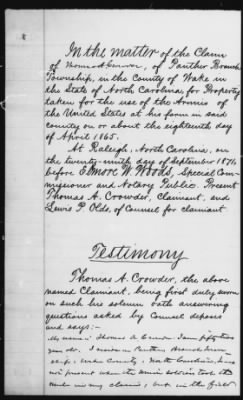 In the matter of the Claim
of Thomas A Crowder, of Panther Branch
Township, in the County of Wake in
the State of North Carolina for Property
taken for the use of the Armies of
the United States at his farm in said
county on or about the eighteenth day
of April 1865.
At Raleigh, North Carolina, on
the twenty-ninth day of September 1871,
before Elmore W. Woods, Special Com-
missioner and Notary Public. Present
Thomas A. Crowder, Claimant. and
Lewis P. Olds, of Counsel for claimant.
Testimony
Thomas A. Crowder, the above
named Claimant, being first duly sworn
on such his solemn oath answering
questions asked by Counsel deposes
and says:-
My name is Thomas A Crowder I am fifty two
years old. I reside in Panther Branch Town-
ship, Wake County, North Carolina. I was
not present when the union soldiers took the
in my claim, I was in the field